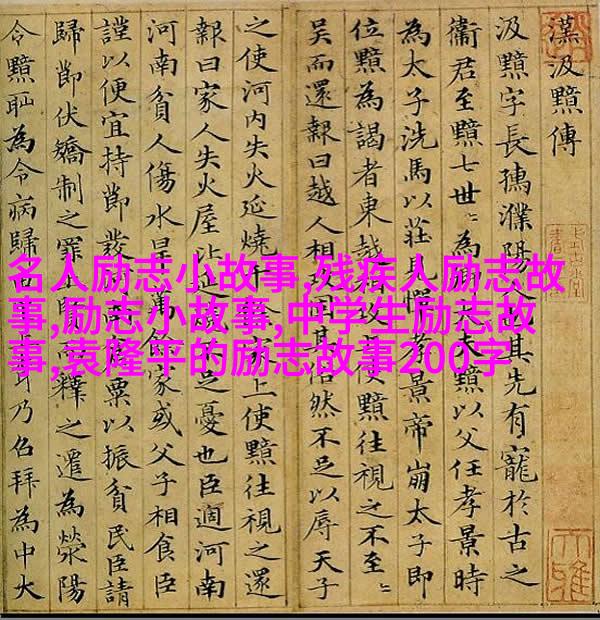 漢汲黯傳
汲黯字長孺濮陽人其先有寵於古之
衞君至黯七世〻為卿大夫黯以父任孝景時
為太子洗馬以莊見憚孝景帝崩太子即
位黯為謁者東越相攻上使黯往視之不至〻
吳而還報曰越人相攻固其俗然不足以辱天子
之使河内失火延燒千餘家上使黯往視之還
報曰家人失火屋比延燒不足憂也臣過河南
河南貧人傷水旱萬餘家或父子相食臣
謹以便宜持節發河南倉粟以振貧民臣請
歸節伏矯制之罪上賢而釋之遷為滎陽
令黯恥為令病歸田里上聞乃召拜為中大
名人励志小故事,残疾人励志故
事,励志小故事,中学生励志故
事,袁隆平的励志故事200字